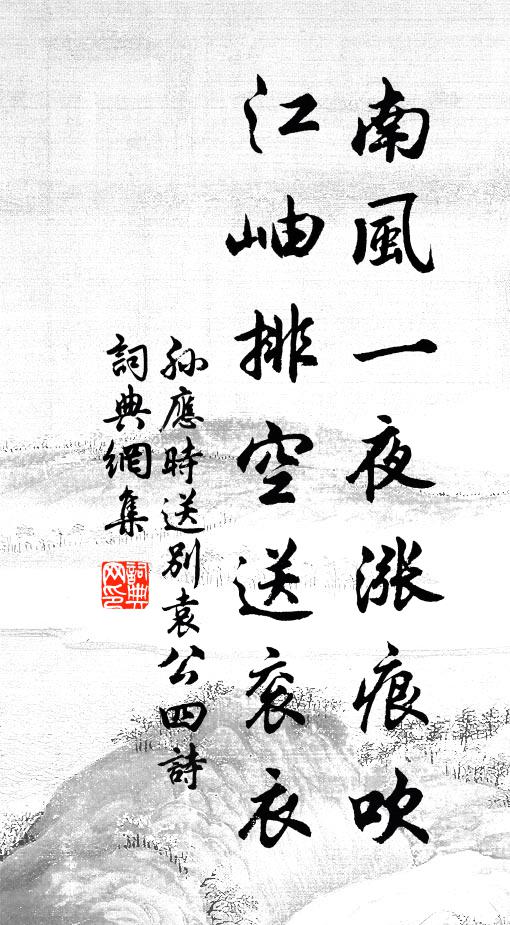 南風一夜漲痕吹
江岫排空送衮衣
孙應時送别袁公四詩
詞典網集
詞典网印